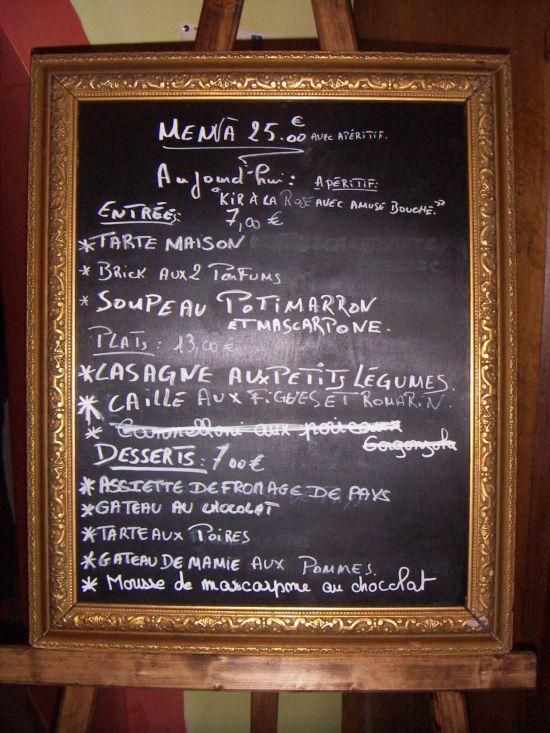 MENU À 25.00 € AVEC APÉRITIF.
Aujourd'hui: APÉRITIF:
"KIR À LA ROSE AVEC AMUSE BOUCHE."
ENTRÉES: 7,00 €
*TARTE MAISON
* BRICK AUX 2 PARFUMS
* SOUPE AU POTIMARRON
ET MASCARPONE.
PLATS: 13,00 €
*LASAGNE AUX PETITS LÉGUMES.
* CAILLE AUX FIGUES ET ROMARIN
* Cannelloni aux poireaux
Gorgonzola
DESSERTS: 7,00 €
*ASSIETTE DE FROMAGE DE PAYS
*GATEAU AU CHOCOLAT
*TARTE AUX POIRES
*GATEAU DE MAMIE AUX POMMES.
* Mousse de mascarpone au chocolat